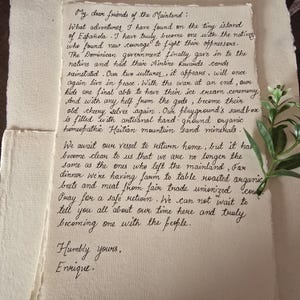 My dear friends of the Mainland:
What adventures I have found on the tiny island
of Española. I have truly become one with the natives
who found new courage to fight their oppressors.
The Dominican government finally gave in to the
natives and had their Airline Rewards cards
reinstated. Our two cultures, it appears, will once
again live in peace. With the war at an end, our
kids are final able to have their ice cream ceremony.
And with any help from the gods, become their
old cheery selves again. Our playground sandbox
is filled with artisinal hand-ground organic
homeopathic Haitian mountain sand minerals.
We await our vessel to return home, but it has
become clear to us that we are no longer the
same as the ones who left the mainland. For
dinner we're having farm to table roasted organic
beets and meat from fair trade unionized cows.
Pray for a safe return. We can not wait to
tell you all about our time here and truly
becoming one with the people.
Humbly yours,
Enrique.